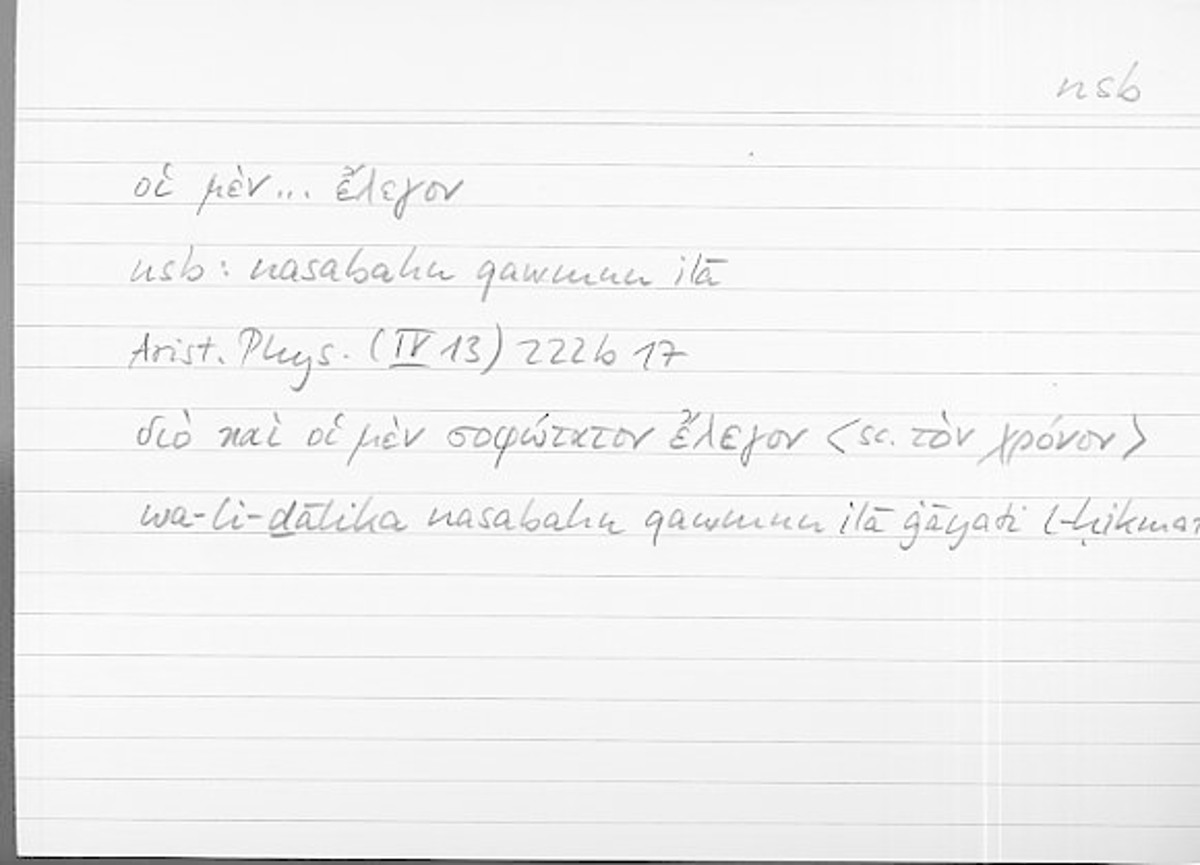 nsb
οἱ μὲν... ἔλεγον
nsb: nasabahu qawmun ilā
Arist. Phys. (IV 13) 222b 17
διὸ καὶ οἱ μὲν σοφώτατον ἔλεγον <sc. τὸν χρόνον>
wa-li-ḏālika nasabahu qawmun ilā ġāyati l-ḥikmat